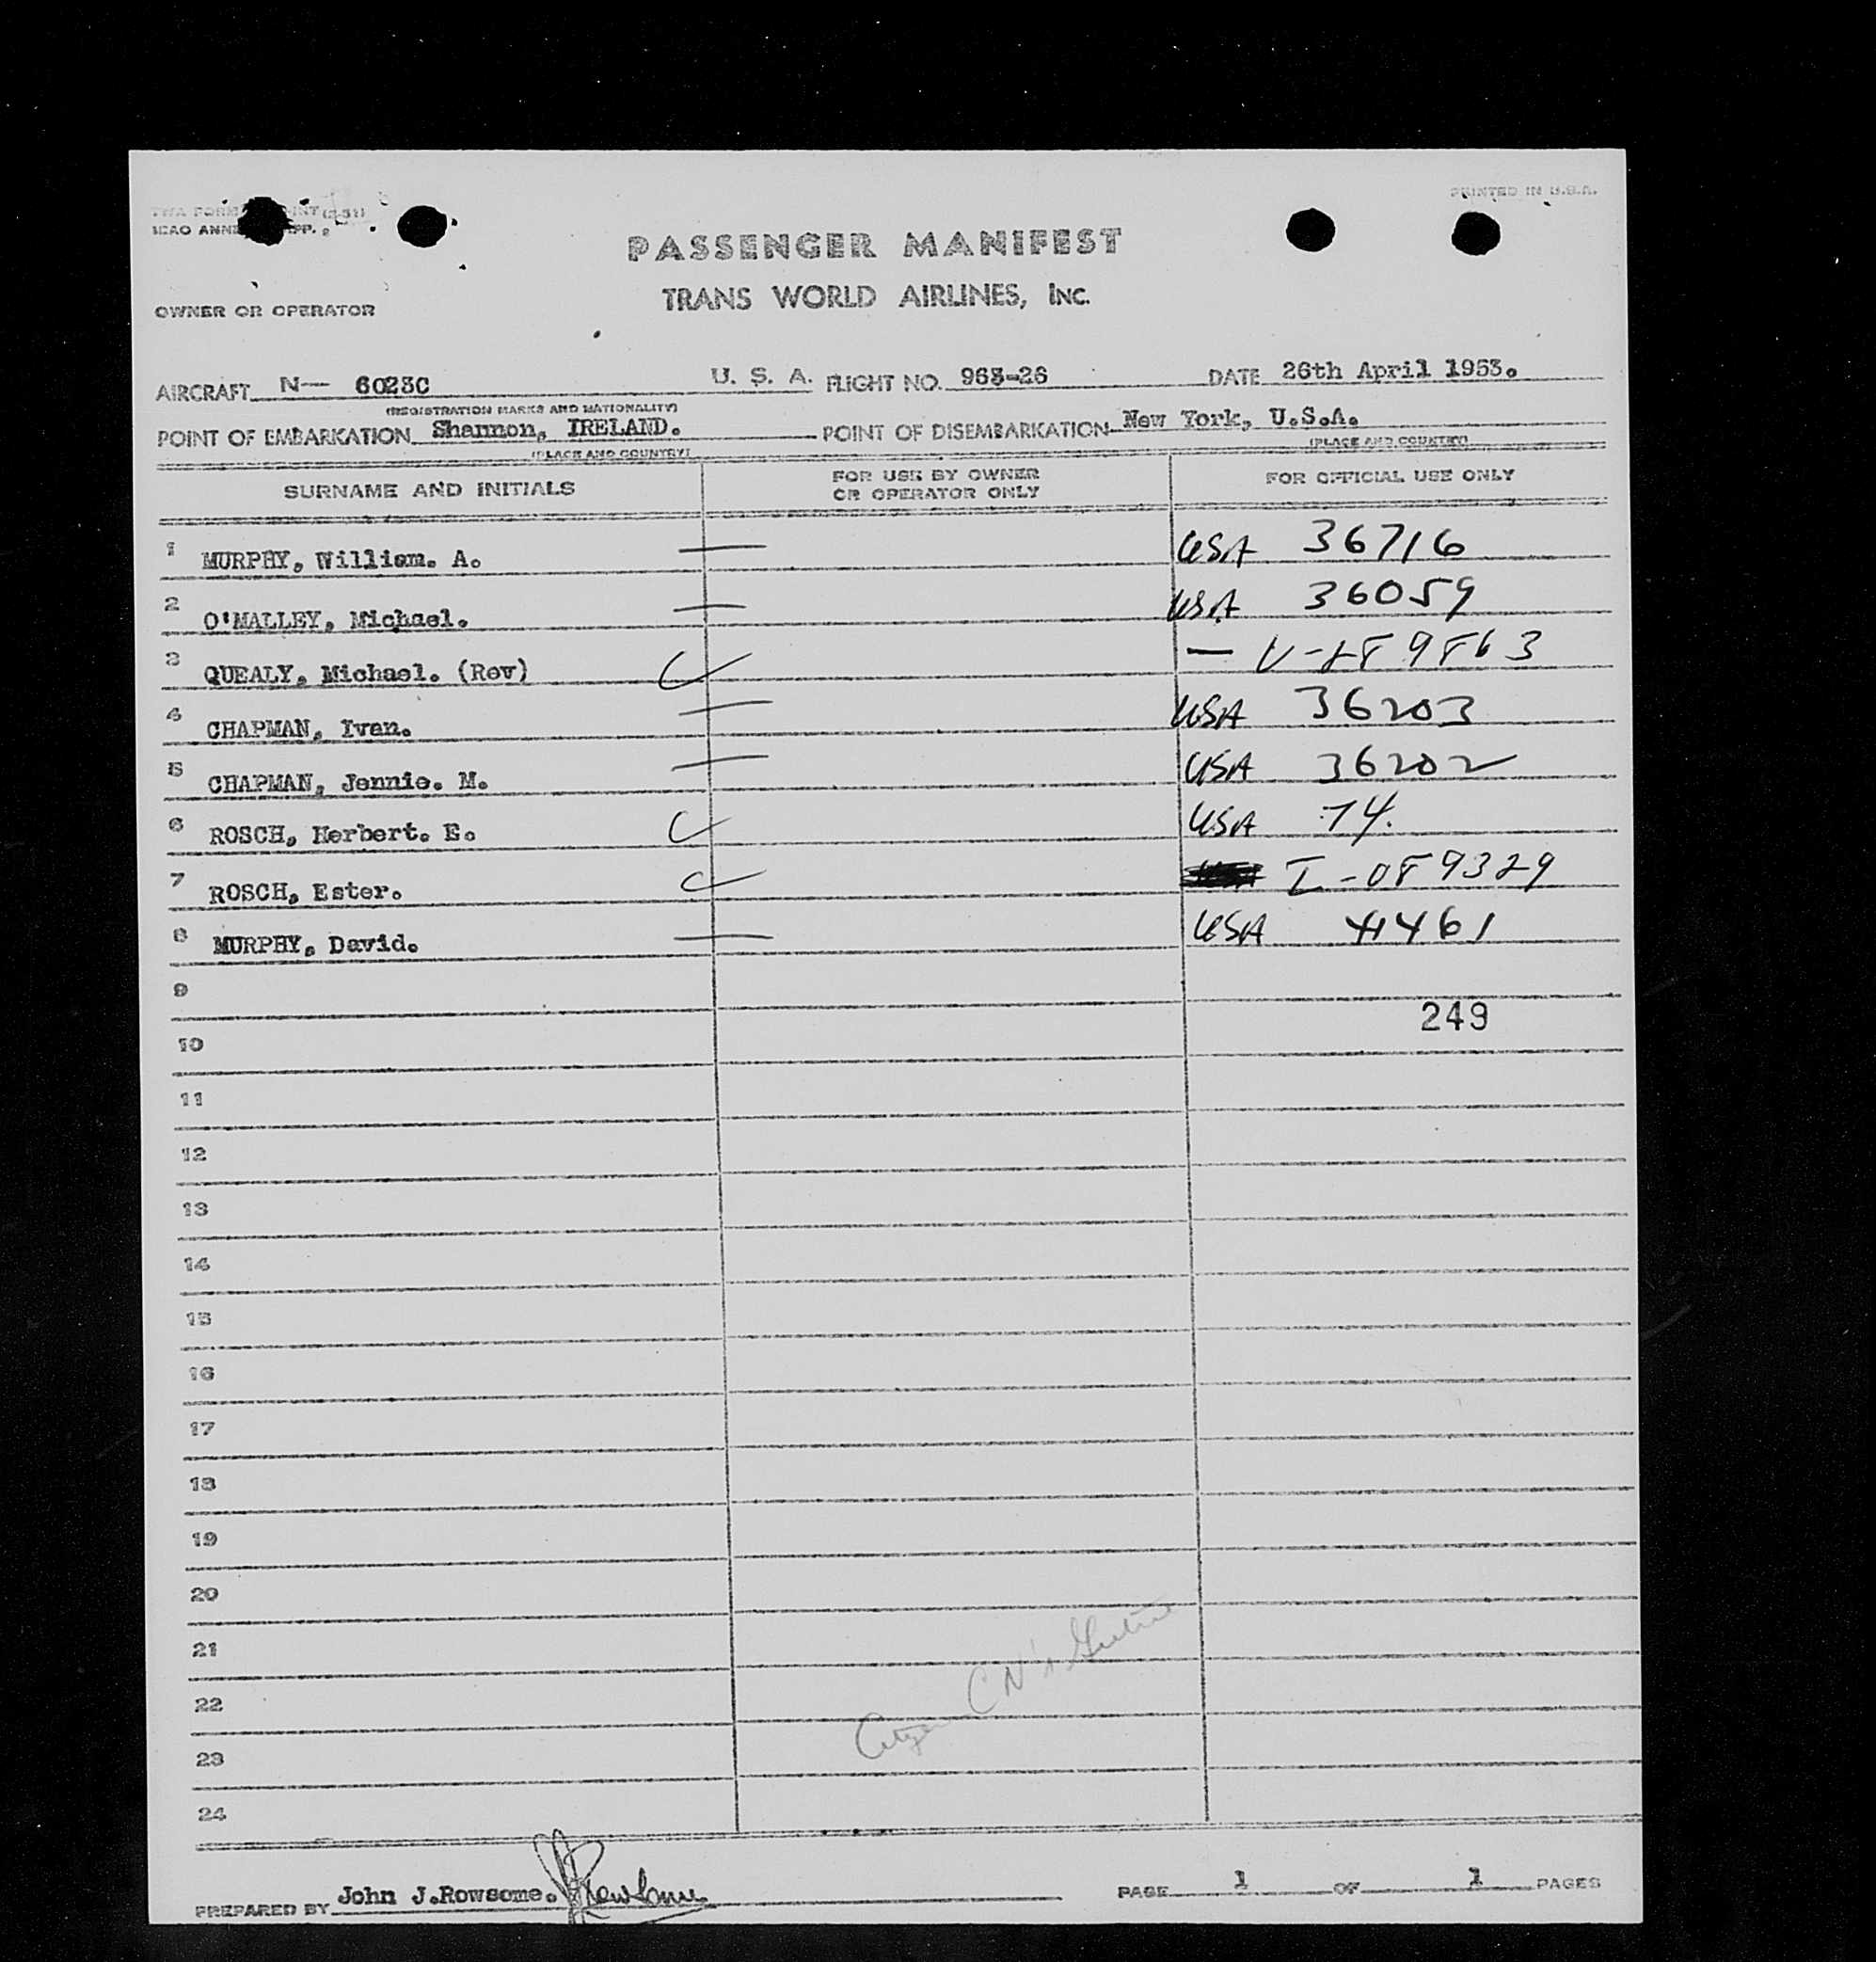 PRINTED IN U.S.A.
TWA FORM
ICAO ANNE PP.
PASSENGER MANIFEST
OWNER OR OPERATOR
TRANS WORLD AIRLINES, INC.
AIRCRAFT N— 6023C U. S. A. FLIGHT NO. 963-26 DATE 26th April 1953.
(REGISTRATION MARKS AND NATIONALITY)
POINT OF EMBARKATION Shannon, IRELAND. POINT OF DISEMBARKATION New York, U.S.A.
(PLACE AND COUNTRY) (PLACE AND COUNTRY)
SURNAME AND INITIALS FOR USE BY OWNER OR OPERATOR ONLY FOR OFFICIAL USE ONLY
1 MURPHY, William. A. — USA 36716
2 O'MALLEY, Michael. — USA 36059
3 QUEALY, Michael. (Rev) ✓ —
4 CHAPMAN, Ivan. — USA 36203
5 CHAPMAN, Jennie. M. — USA 36202
6 ROSCH, Herbert. E. ✓ USA 74.
7 ROSCH, Ester. ✓ I-089329
8 MURPHY, David. — USA 41461
9
249
10
11
12
13
14
15
16
17
18
19
20
21
22
23
24
PREPARED BY John J.Rowsome. JJRowsome PAGE 1 OF 1 PAGES